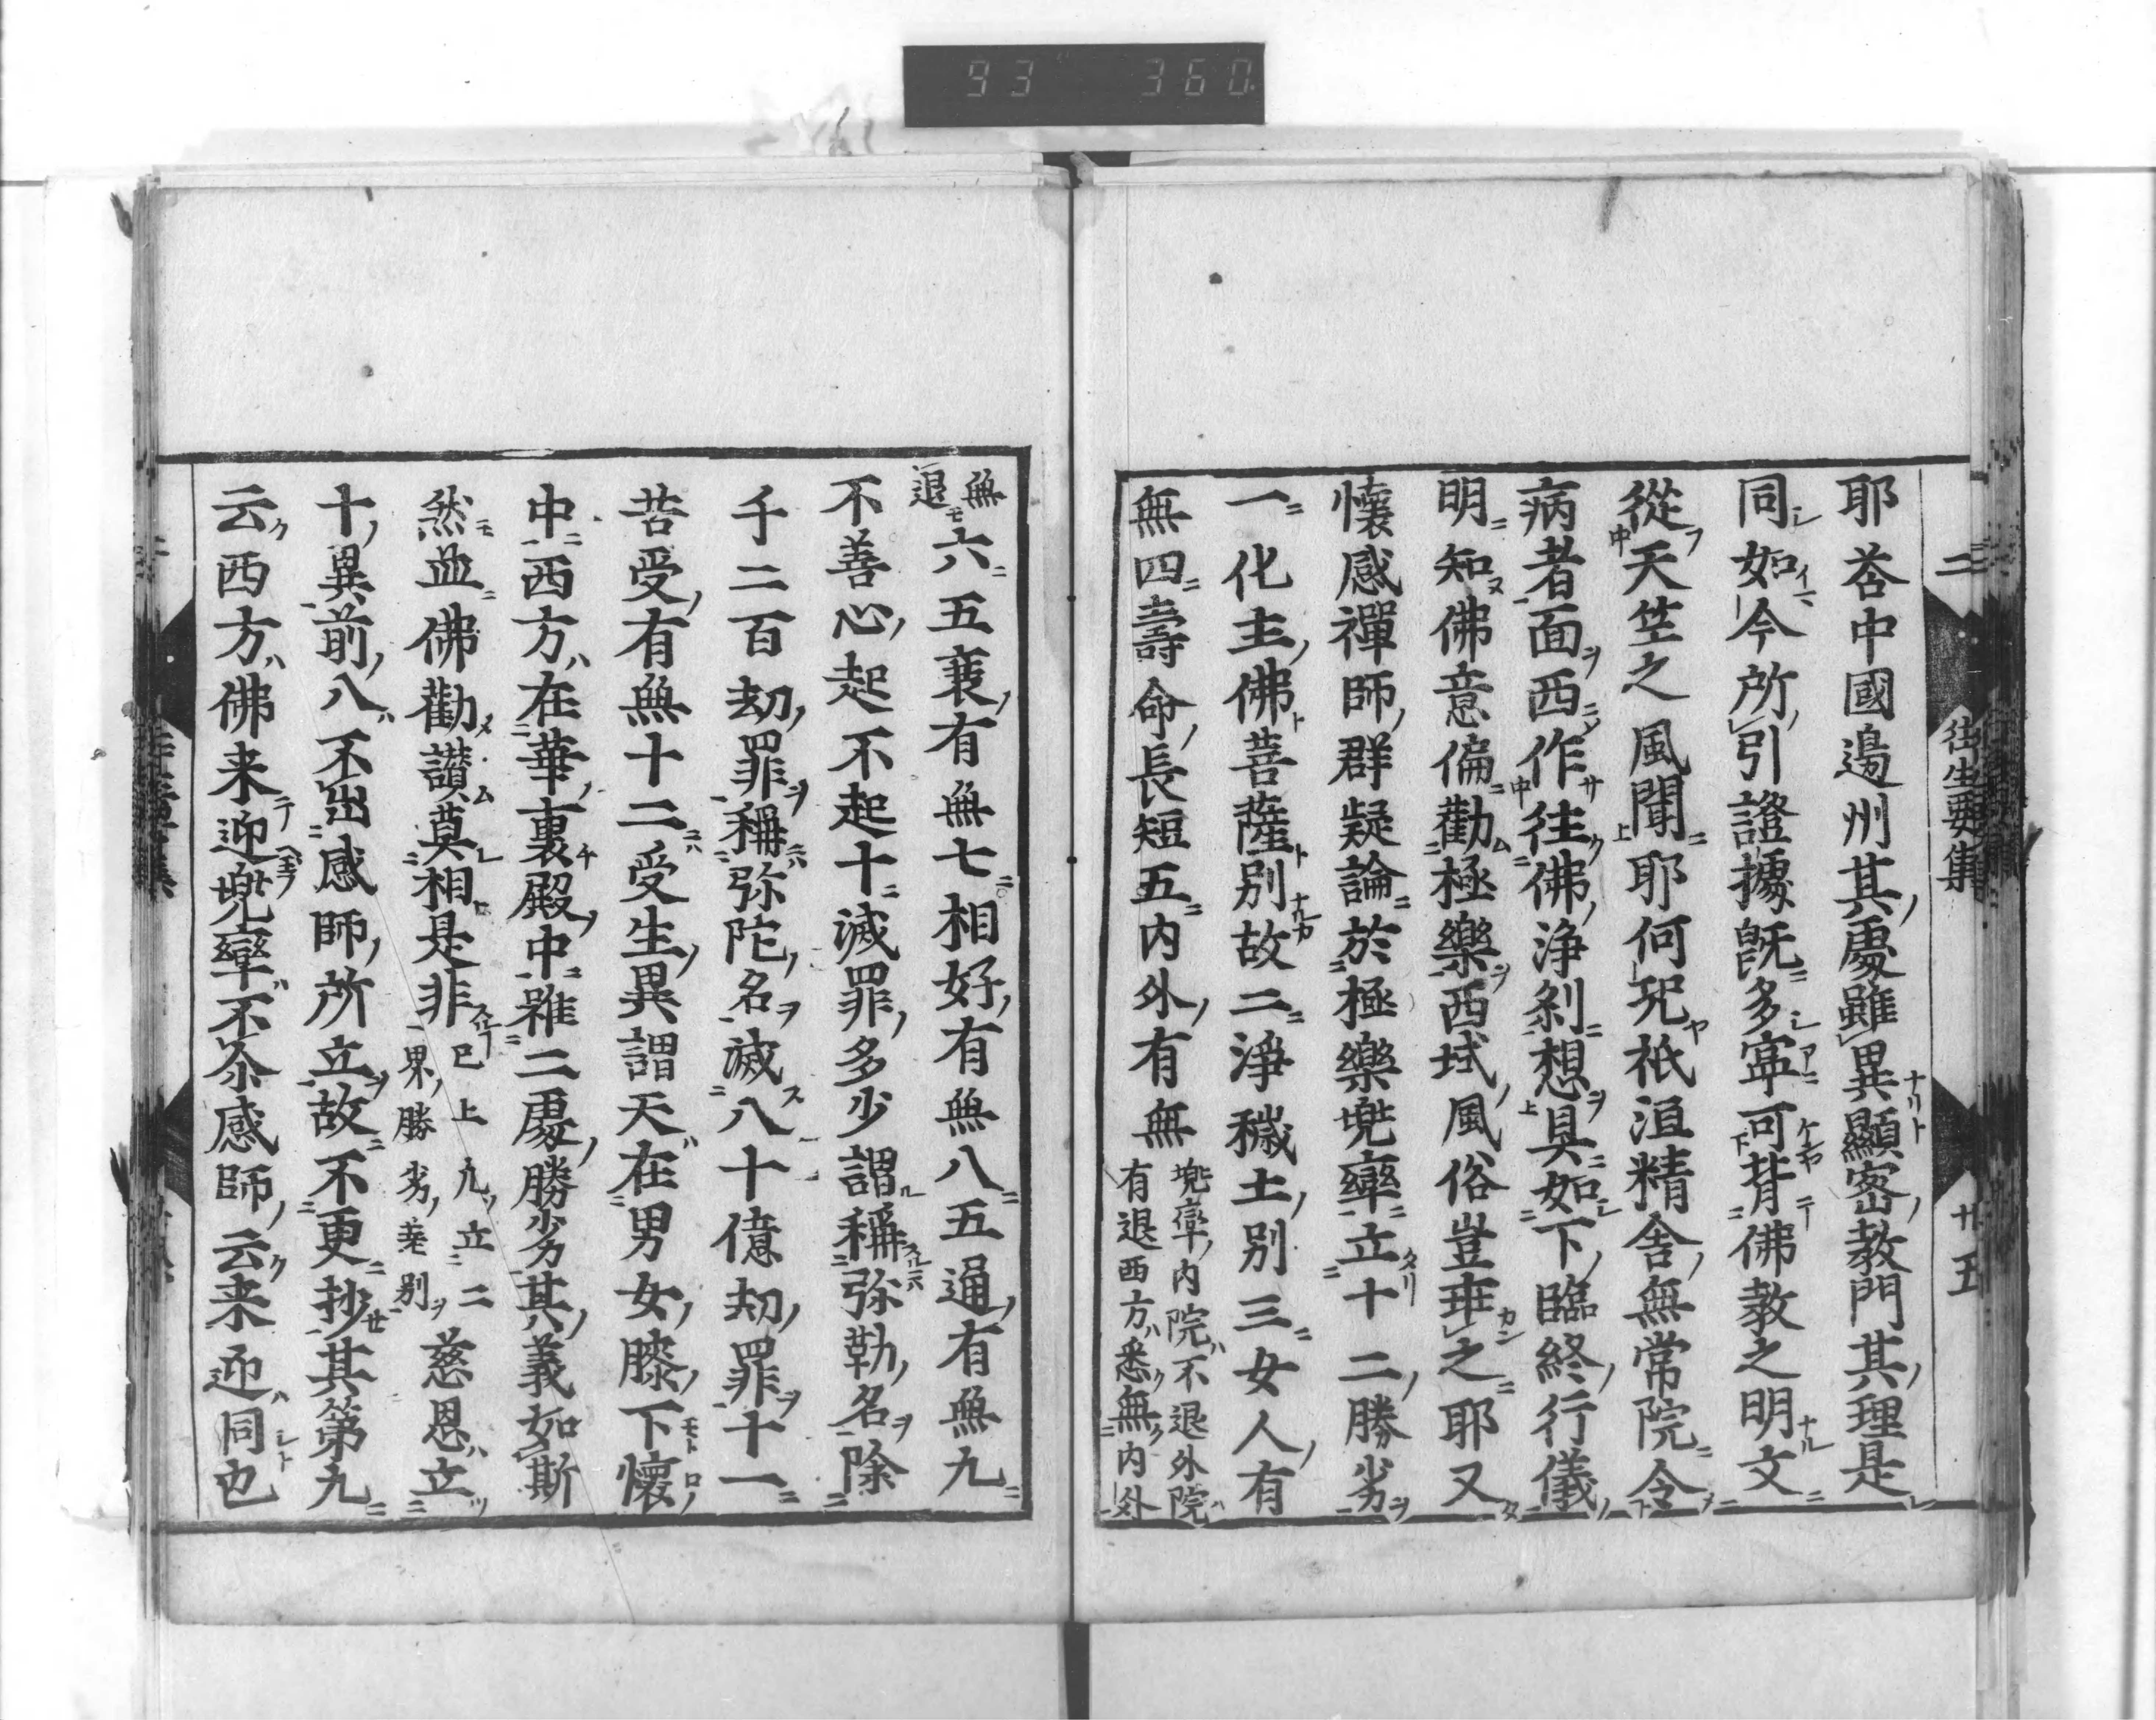 93 360
二 往生要集 廿五
耶荅中國邊州其處雖異顯密教門其理是
同如今所引證據既多寧可背佛教之明文
從天竺之風聞耶何況祇洹精舍無常院令
病者面西作往佛淨刹想具如下臨終行儀
明知佛意偏勸極樂西域風俗豈乖之耶又
懷感禪師群疑論於極樂兜率立十二勝劣
一化主佛菩薩別故二淨穢土別三女人有
無四壽命長短五内外有無兜率内院不退外院
有退西方悉無内外
無
退六五衰有無七相好有無八五通有無九
不善心起不起十滅罪多少謂稱弥勒名除
千二百劫罪稱弥陀名滅八十億劫罪十一
苦受有無十二受生異謂天在男女膝下懷
中西方在華裏殿中雖二處勝劣其義如斯
然並佛勸讃莫相是非已上九立二
界勝劣差別慈恩立
十異前八不出感師所立故不更抄其第九
云西方佛来迎兜率不尒感師云来迎同也